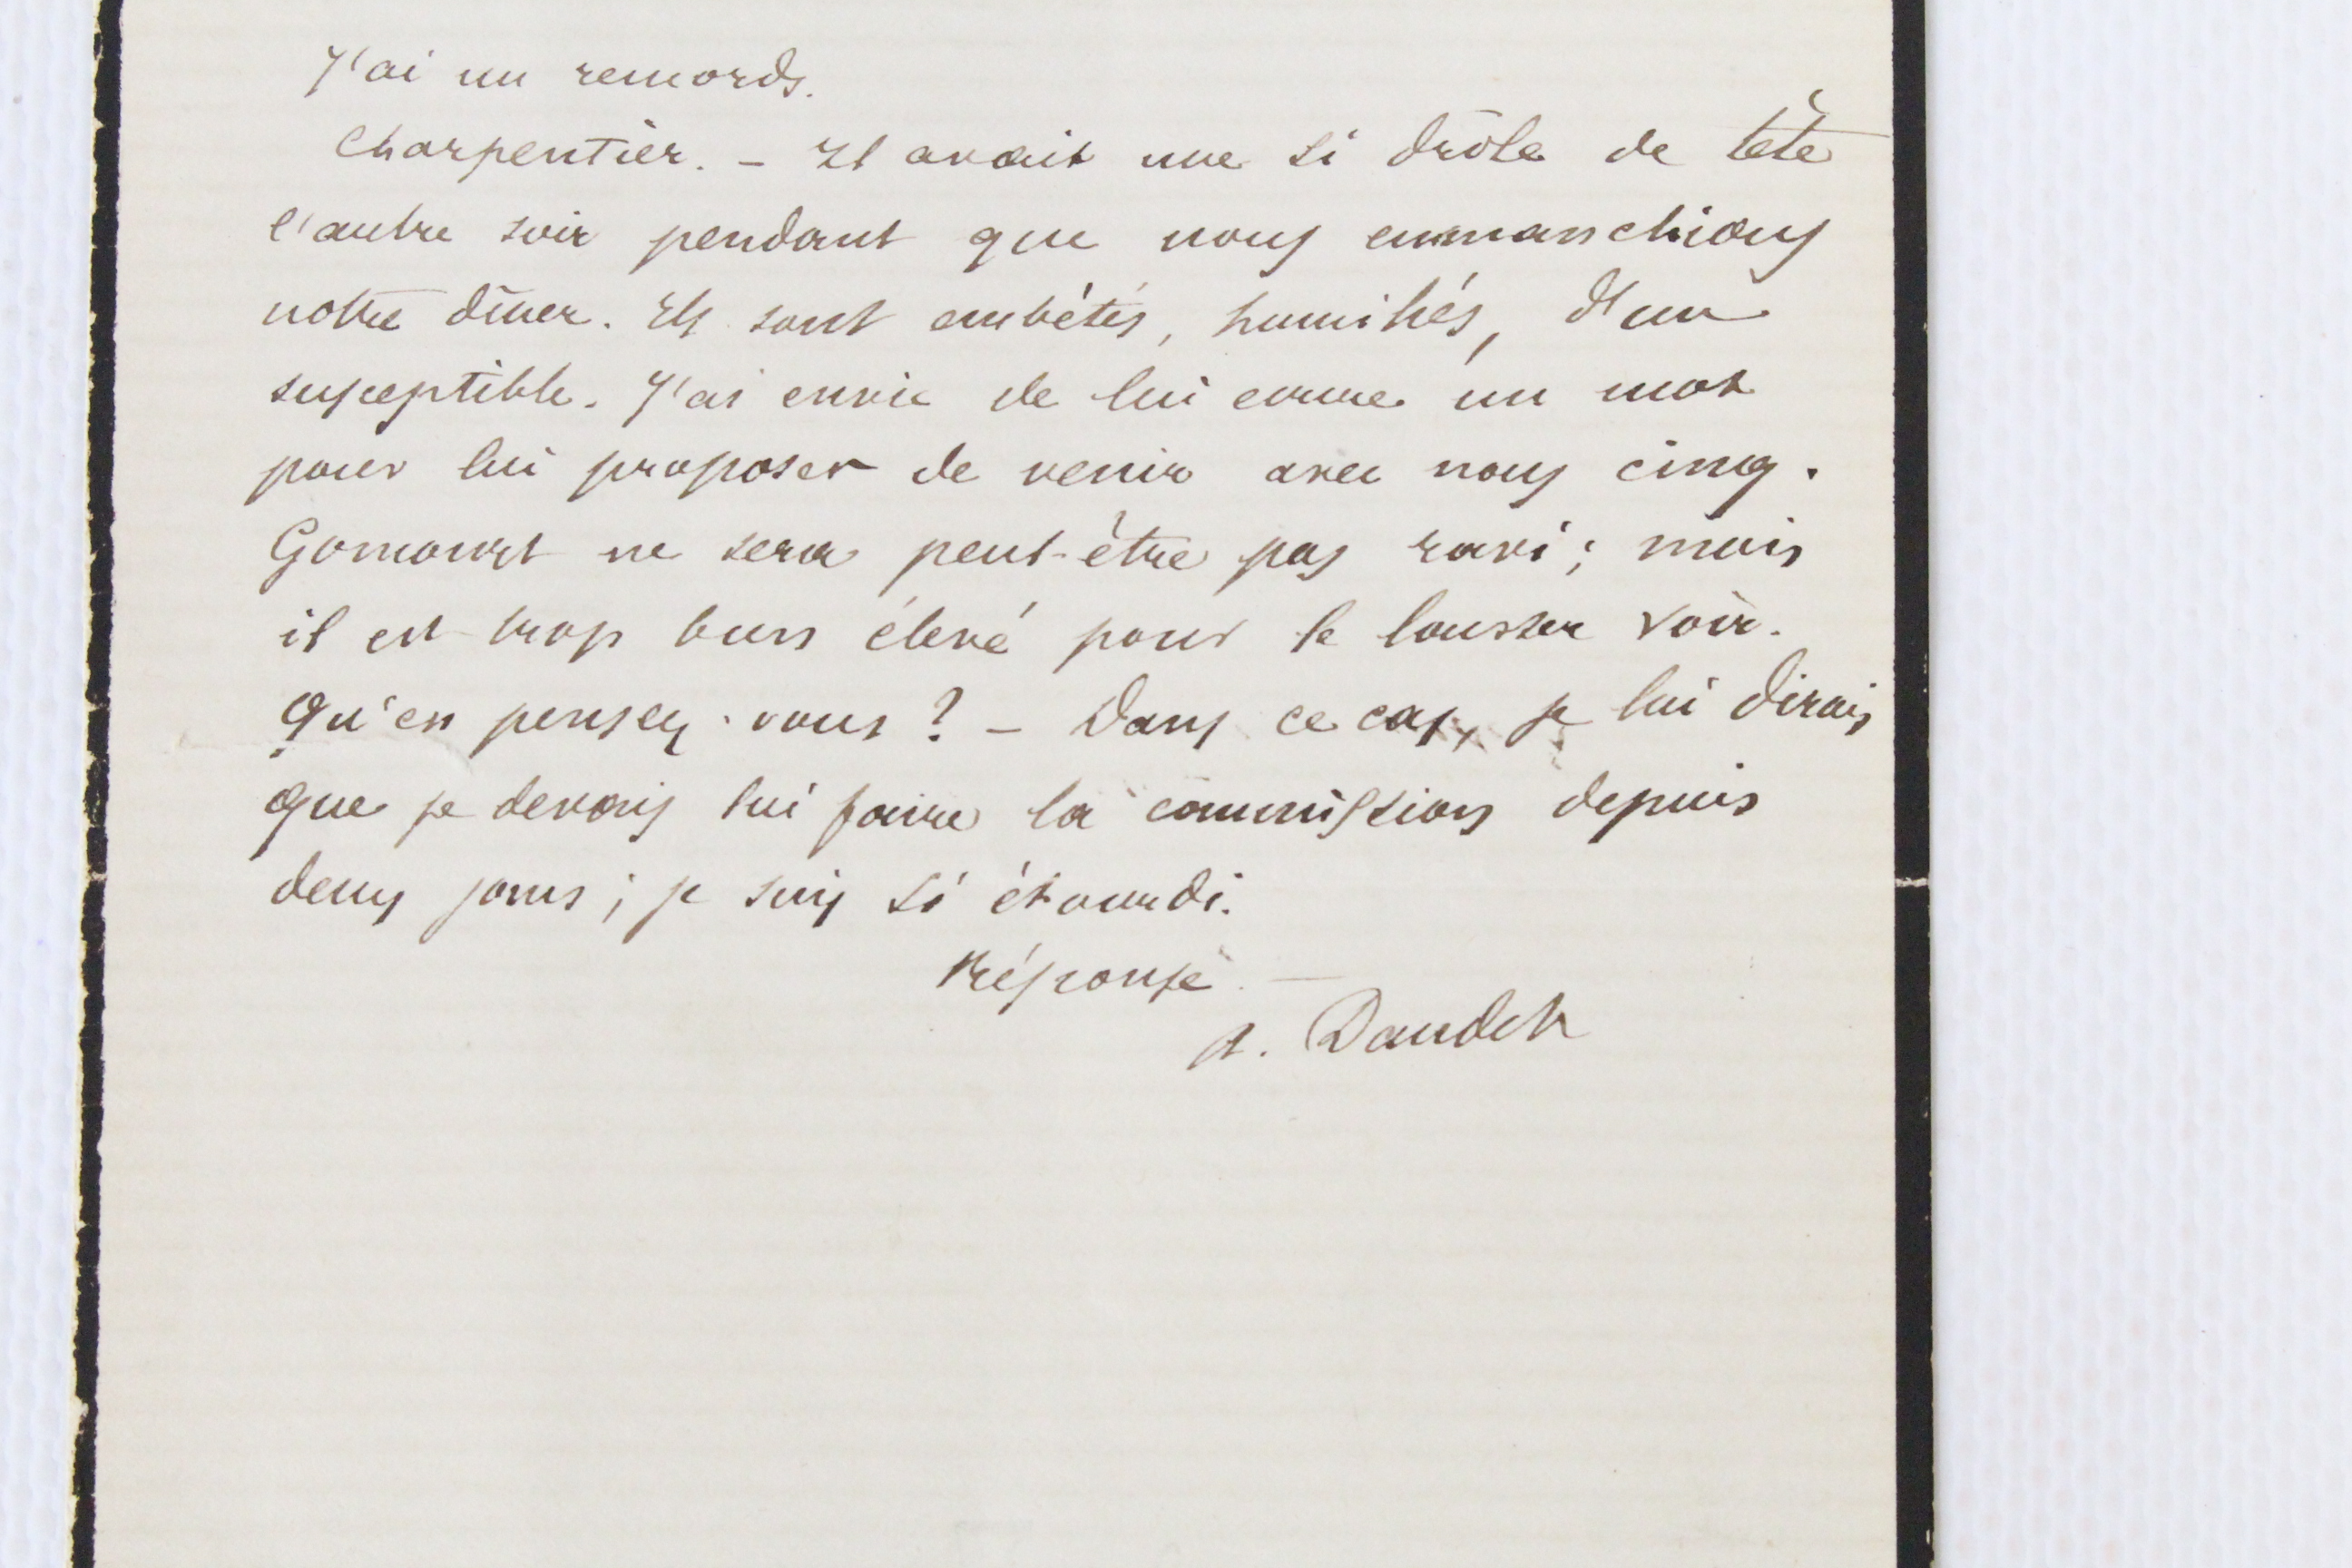 J'ai un remords.
Charpentier. – Il avait une si drôle de tête
l'autre soir pendant que nous emmanchions
notre dîner. Ils sont embêtés, humiliés, d'un
susceptible. J'ai envie de lui écrire un mot
pour lui proposer de venir avec nous cinq.
Goncourt ne sera peut-être pas ravi; mais
il est trop bien élevé pour le laisser voir.
Qu'en pensez-vous? – Dans ce cas, je lui dirais
que je devais lui faire la commission depuis
deux jours; je suis si étourdi.
Réponse. –
A. Daudet